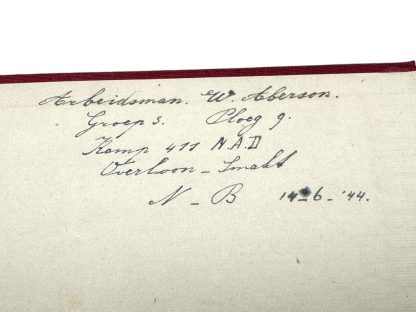 Arbeidsman. W. Aberson.
Groep 3. Ploeg 9.
Kamp 411 N.A.D
Overloon - Smakt
N - B 14-6-'44.